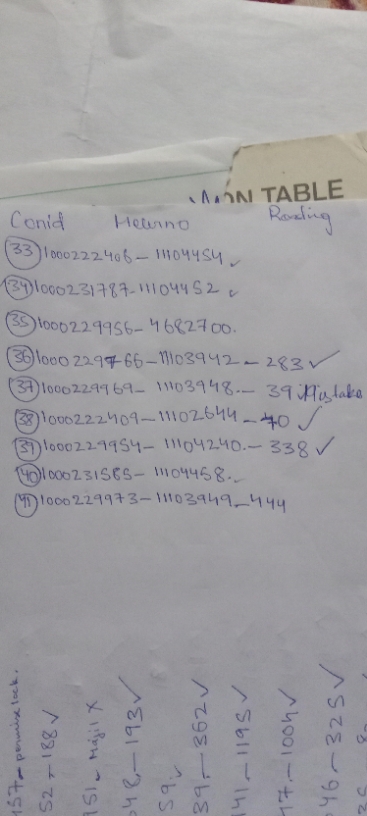 ON TABLE
Conid Meterno Reading
33 1000222406 - 11104454 ✓
34 1000231787 - 11104452 ✓
35 1000229956 - 4682700.
36 1000229766 - 11103942 - 283 ✓
37 1000229969 - 11103948. - 39 Mistake
38 1000222409 - 11102644 - 70 ✓
39 1000229954 - 11104240. - 338 ✓
40 1000231585 - 11104458.
41 1000229973 - 11103949 - 444
157 - lock.
52 - 188 ✓
151 - Majil X
48. - 193 ✓
59. ✓
39. - 362 ✓
141 - 1195 ✓
47. - 1004 ✓
46. - 325 ✓